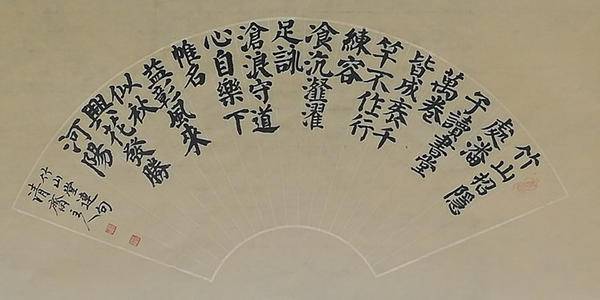 竹山招隱
處潘
子讀書堂
萬卷
皆成袠千
竿不作行
練容
飡沆瀣濯
足詠
滄浪守道
心自樂下
帷名
益彰風來
似秋
興花發勝
河陽
竹山堂連句
齋主人